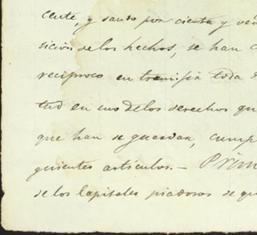 cente, y santo por cienta y ved
sicion de los hechos, se han c
reciproco en transigir toda d
tud en uso de los derechos qu
que han se guardar, cump
guientes articulos. — Prim
se los Capitales piadosos se qu